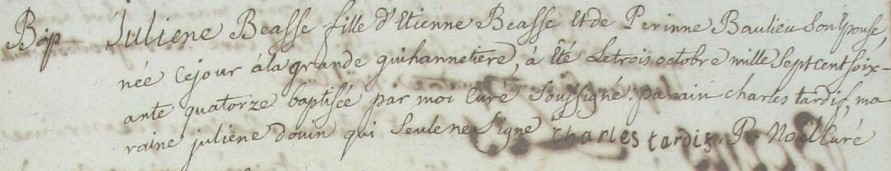 Bap Juliene Beasse fille d'Etienne Beasse et de Perinne Baulieu son Epouse,
née cejour àla grande guihannetiere, à Eté Letrois octobre mille Sept cent soix-
ante quatorze baptisée par moi Curé Soussigné. parain charles tardif, ma
raine juliene douin qui Seule ne Signe charles tardif. P. Noël Curé